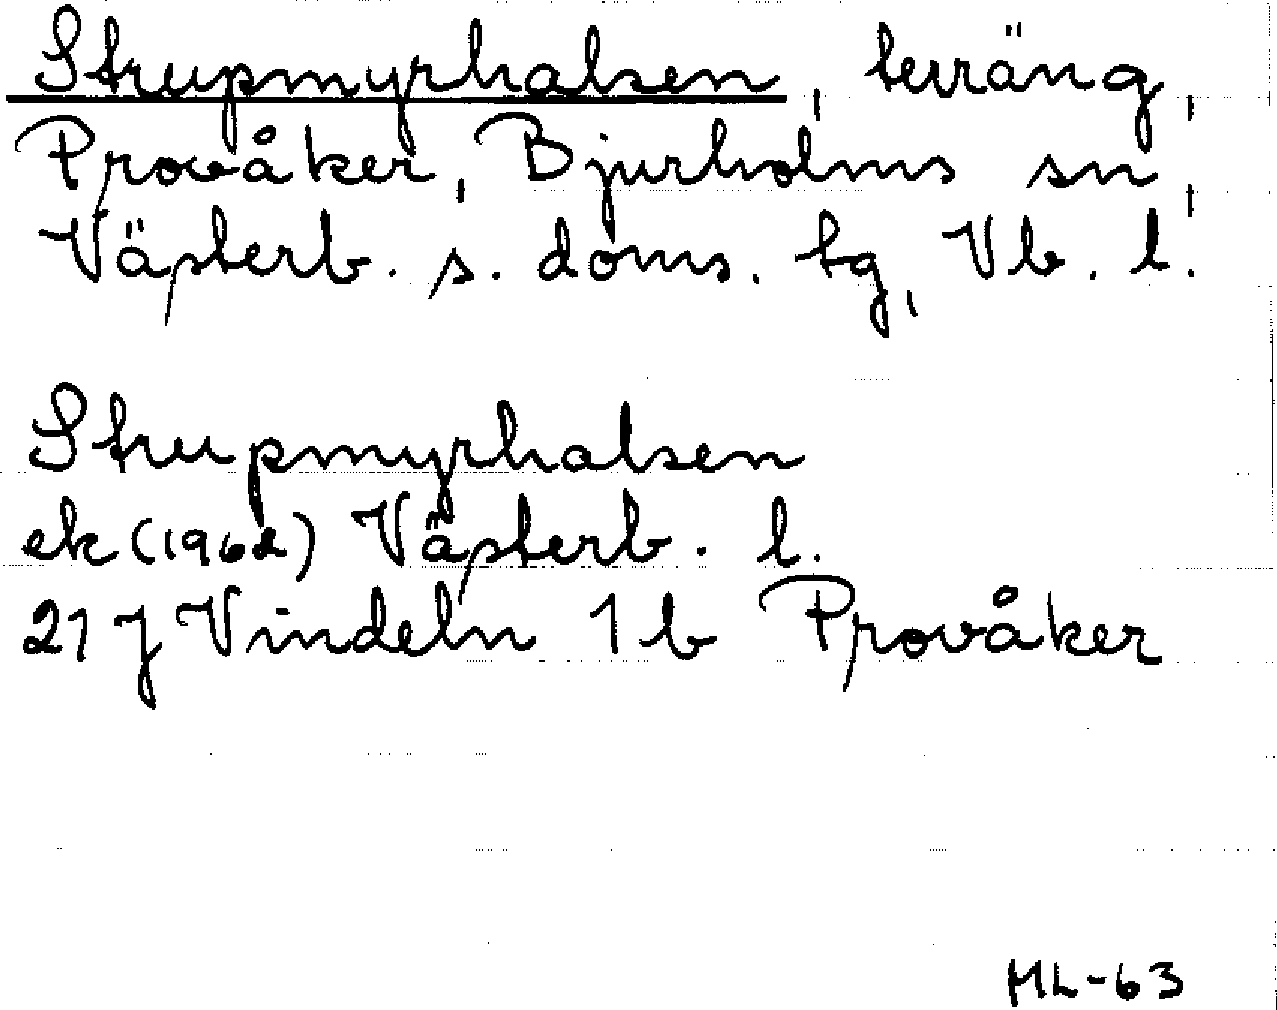 Strupmyrhalsen, terräng,
Provåker, Bjurholms sn,
Västerb. s. doms. tg, Vb. l.
Strupmyrhalsen
ek (1962) Västerb. l.
21 J Vindeln 1 b Provåker
ML-63